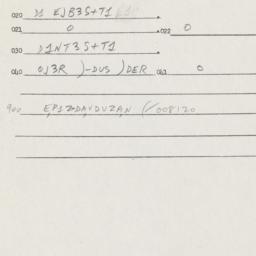 020 D1 EJB3S+T1
021 0 022 0
030 D1NT3S+T1
040 OJ3R )-DUS )DER 041 0
900 EP1Z-DAVDUZAN (/008120